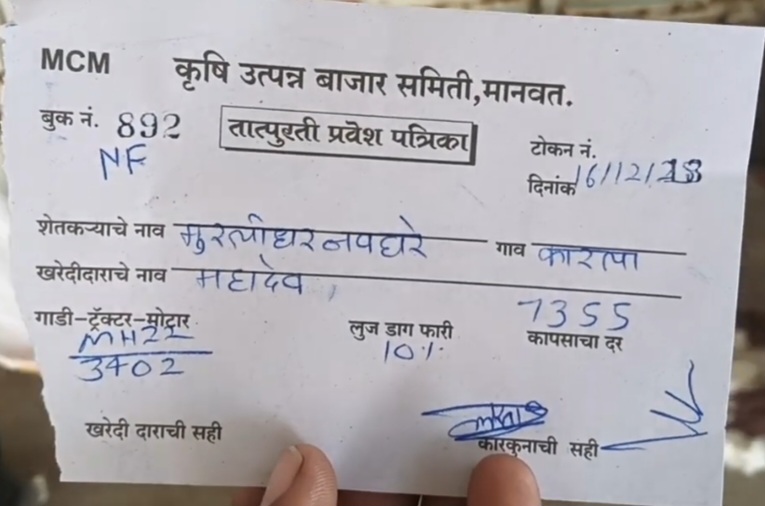 MCM कृषि उत्पन्न बाजार समिती,मानवत.
बुक नं. 892 तात्पुरती प्रवेश पत्रिका
NF
टोकन नं.
दिनांक 16/12/23
शेतकऱ्याचे नाव मुरलीधर नवघरे गाव कारला
खरेदीदाराचे नाव महादेव
गाडी-ट्रॅक्टर-मोटार MH22 3402
लुज डाग फारी 10%
7355
कापसाचा दर
खरेदी दाराची सही
कारकुनाची सही